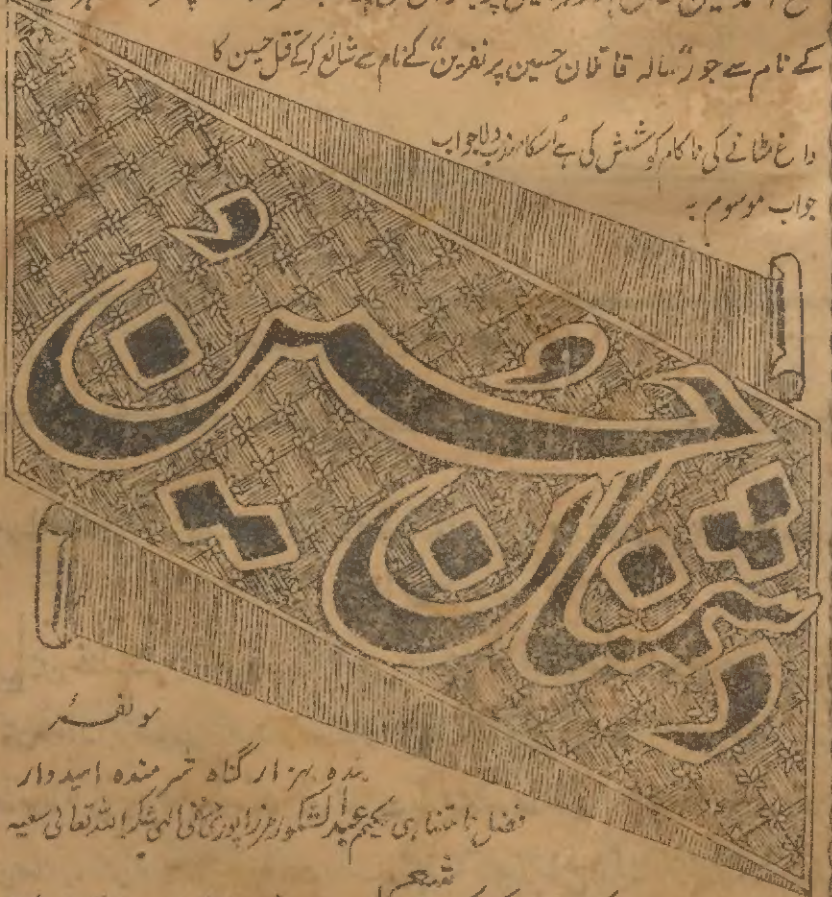 کے نام سے جو رسالہ "قاتلان حسین پر نفرین" کے نام سے شائع کر کے قتل حسین کا
داغ مٹانے کی ناکام کوشش کی ہے اسکا مہذب و لاجواب
جواب موسوم بہ
دشمنان حسینؓ
مولفہ
بندہ ہزار گناہ شرمندہ امیدوار
فضل نامتناہی حکیم عبدالشکور مرزاپوری حنفی شکر اللہ تعالی سعیہ
شعر